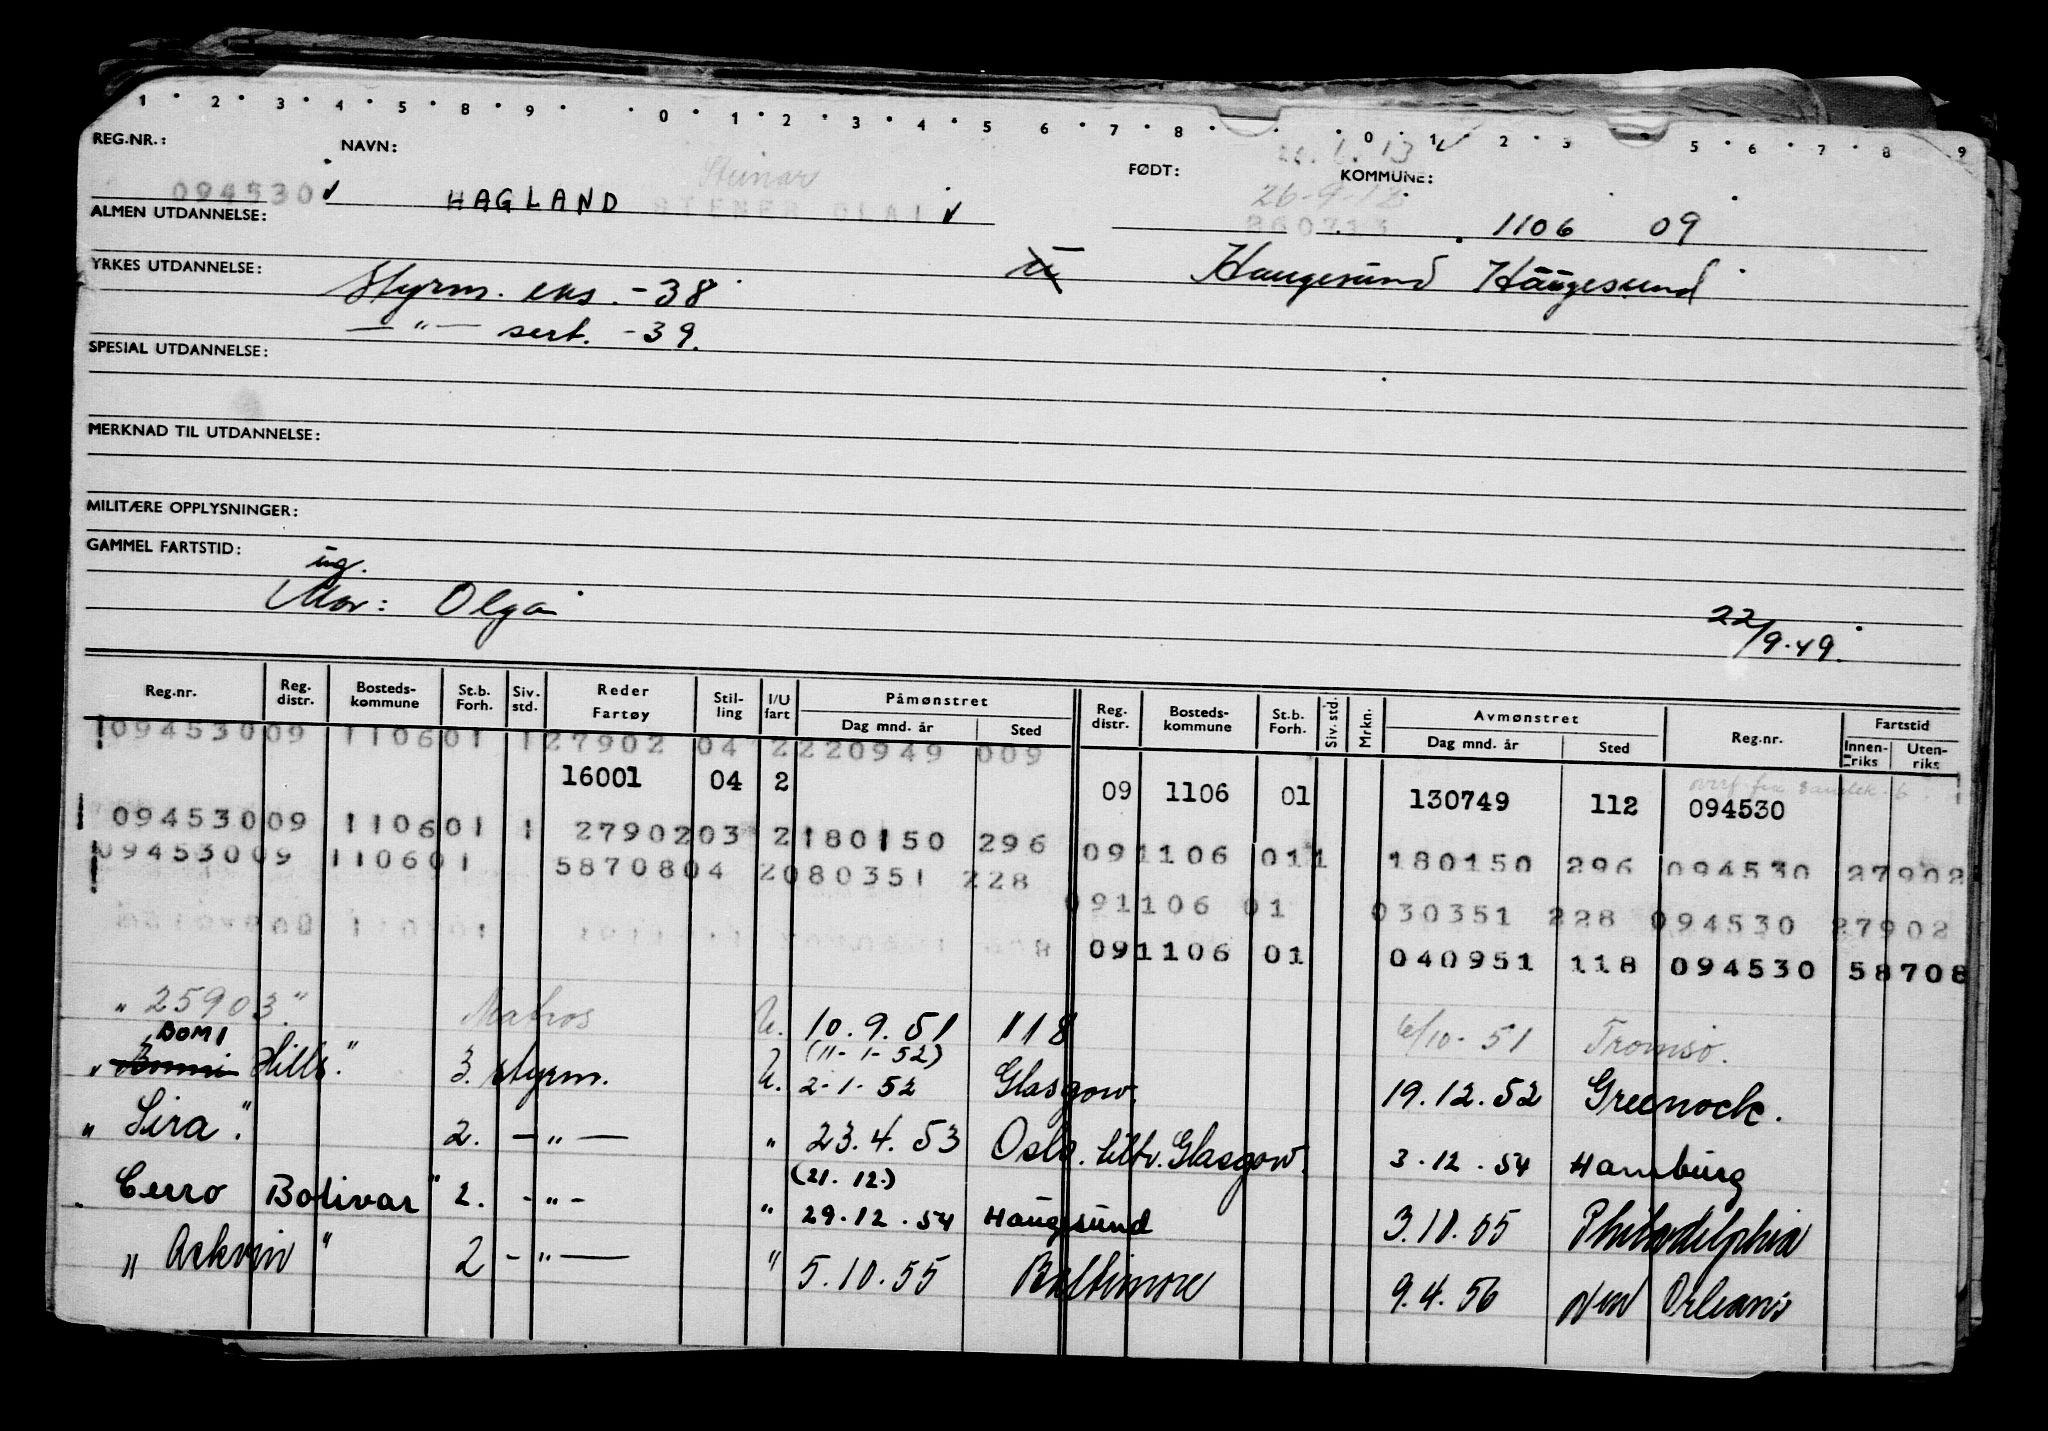 1 2 3 4 5 8 9 0 1 2 3 4 5 6 7 8 0 1 2 3 5 6 7 8 9
REG.NR.: NAVN: Steinar FØDT: KOMMUNE:
094530 HAGLAND STENER OLAI 26-9-12 1106 09
ALMEN UTDANNELSE:
Haugesund Haugesund
YRKES UTDANNELSE: Styrm. eks. -38
— " — sert. -39.
SPESIAL UTDANNELSE:
MERKNAD TIL UTDANNELSE:
MILITÆRE OPPLYSNINGER:
GAMMEL FARTSTID:
ug.
Mor: Olga 22/9.49.
Reg.nr. Reg. distr. Bosteds-kommune St.b. Forh. Siv. std. Reder Fartøy Stil-ling I/U fart Påmønstret Dag mnd. år Sted Reg. distr. Bosteds-kommune St.b. Forh. Siv. std. Mrkn. Avmønstret Dag mnd. år Sted Reg.nr. Fartstid Innen-riks Uten-riks
094530 09 1106 01 1 27902 04 2 220949 009
16001 04 2 09 1106 01 130749 112 094530
094530 09 1106 01 1 27902 03 2 180150 296 09 1106 01 1 180150 296 094530 27902
094530 09 1106 01 58708 04 2 080351 228 09 1106 01 030351 228 094530 27902
09 1106 01 040951 118 094530 58708
" 25903 " Matros U. 10.9.51 118 6/10-51 Tromsø.
BOMI (11-1-52)
" Bomi Hills " 3. styrm. U. 2-1-52 Glasgow. 19.12.52 Greenock.
" Sira " 2. — " — " 23.4.53 Oslo. tiltr. Glasgow. 3.12.54 Hamburg
(21.12.)
" Cerro Bolivar " 2. - " - " 29.12.54 Haugesund 3.10.55 Philadelphia
" Askvin " 2 - " — " 5.10.55 Baltimore 9.4.56 New Orleans